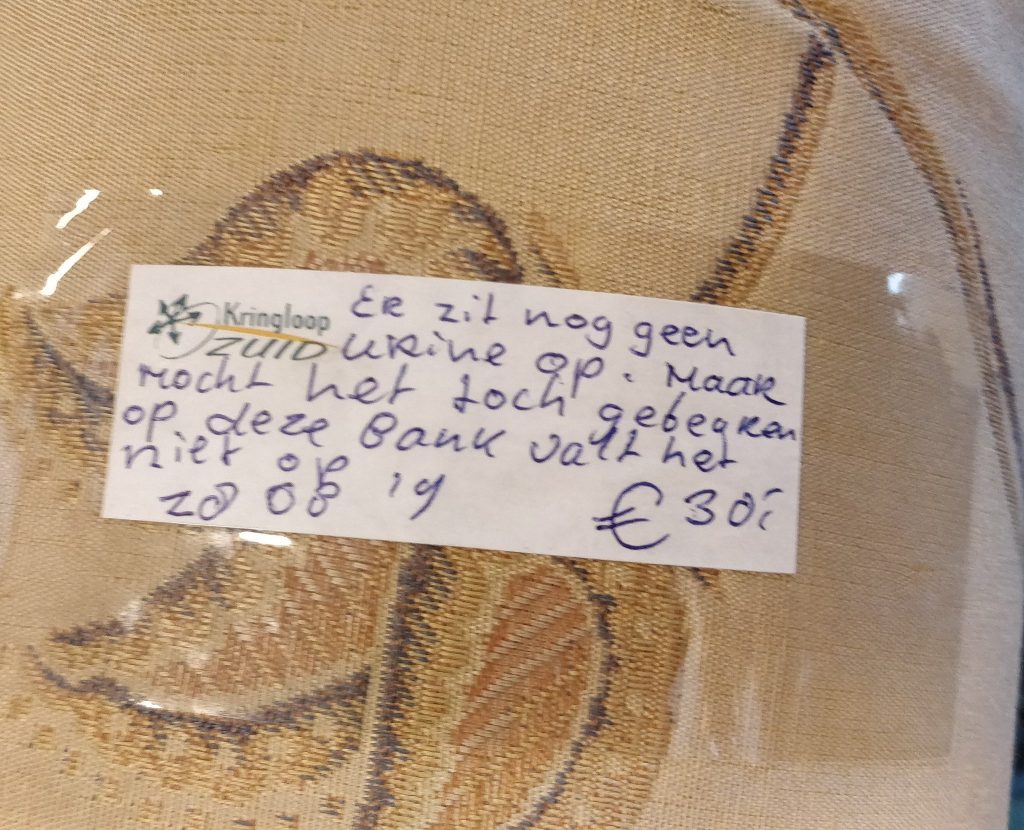 Kringloop
ZUID
Er zit nog geen
urine op. Maar
mocht het toch gebeuren
op deze Bank valt het
niet op
28 08 '19 € 30,-